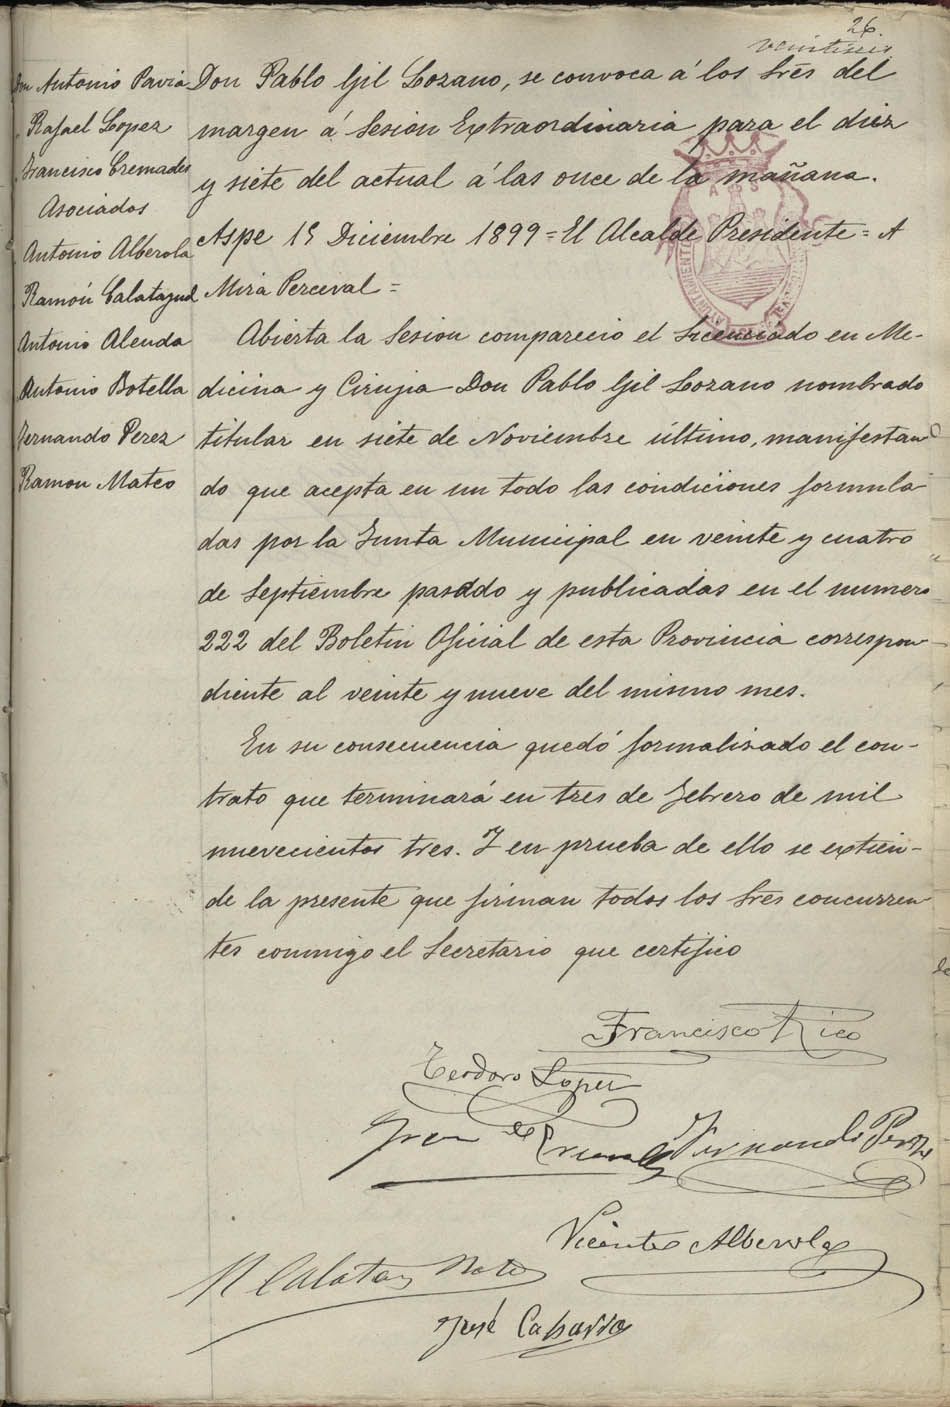 26.
veintiseis
Don Antonio Pavia
Rafael Lopez
Francisco Cremades
Asociados
Antonio Alberola
Ramón Calatayud
Antonio Alenda
Antonio Botella
Fernando Perez
Ramon Mateo
Don Pablo Gil Lozano, se convoca á los Sres del
margen á Sesion Extraordinaria para el diez
y siete del actual á las once de la mañana.
Aspe 15 Diciembre 1899 = El Alcalde Presidente = A
Mira Perceval =
Abierta la Sesion compareció el Licenciado en Me-
dicina y Cirujia Don Pablo Gil Lozano nombrado
titular en siete de Noviembre último, manifestan
do que acepta en un todo las condiciones formula
das por la Junta Municipal en veinte y cuatro
de Septiembre pasado y publicadas en el numero
222 del Boletin Oficial de esta Provincia correspon-
diente al veinte y nueve del mismo mes.
En su consecuencia quedó formalizado el con-
trato que terminará en tres de Febrero de mil
nuevecientos tres. Y en prueba de ello se extien-
de la presente que firman todos los Sres concurren
tes conmigo el Secretario que certifico
Francisco Rico
Teodoro Lopez
Fernando Perez
Vicente Alberola
R Calatayud
José Caparro